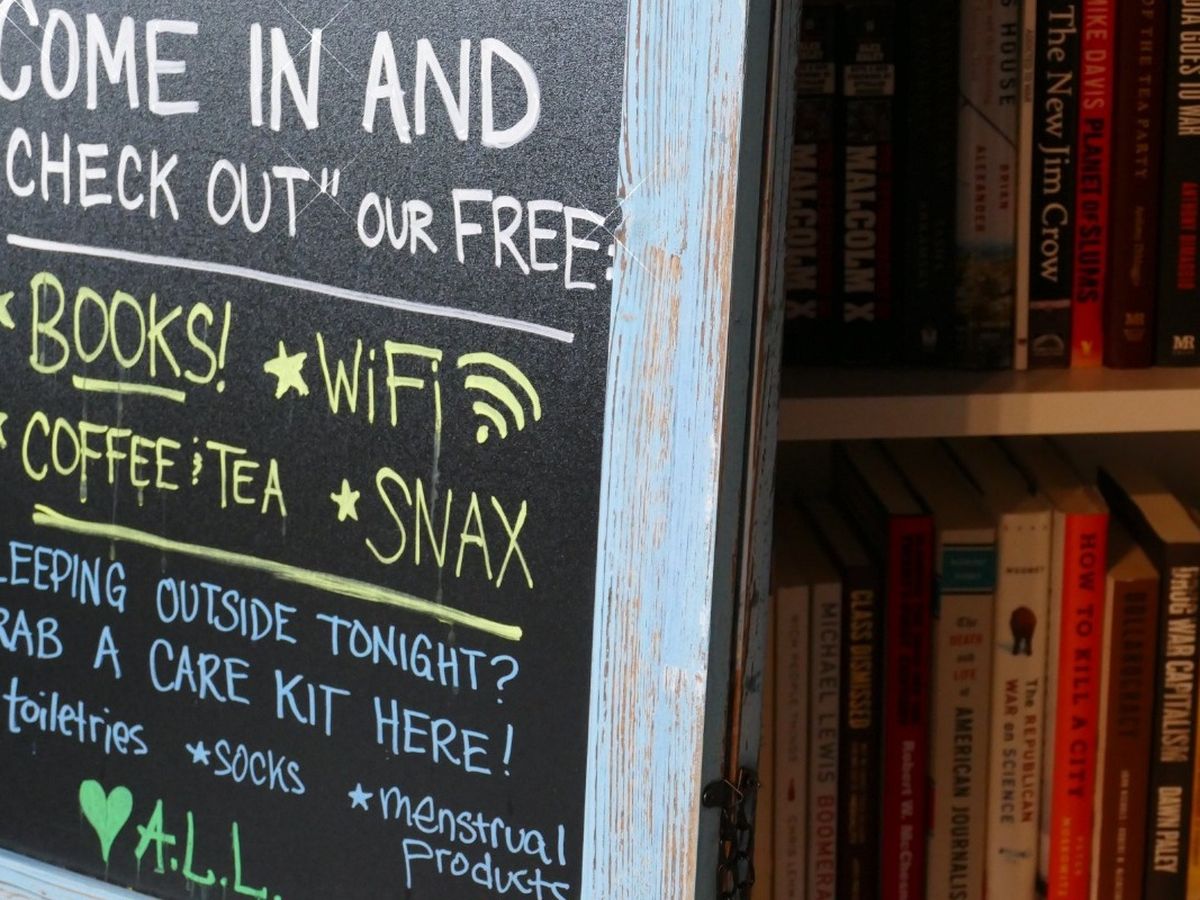 COME IN AND
CHECK OUT" OUR FREE:
BOOKS! ★WiFi
COFFEE & TEA ★SNAX
LEEPING OUTSIDE TONIGHT?
RAB A CARE KIT HERE!
toiletries ★SOCKS ★menstrual
products
♥ A.L.L.
MALCOLM X
MALCOLM X
S HOUSE
BRIAN ALEXANDER
The New Jim Crow
MIKE DAVIS PLANET OF SLUMS
OF THE TEA PARTY
MR
DIA GOES TO WAR
MR
MICHAEL LEWIS BOOMERA
CLASS DISMISSED
Robert W. McChes
The DEATH and LIFE of AMERICAN JOURNALIS
MOONEY The REPUBLICAN WAR on SCIENCE
HOW TO KILL A CITY
DRUG WAR CAPITALISM DAWN PALEY